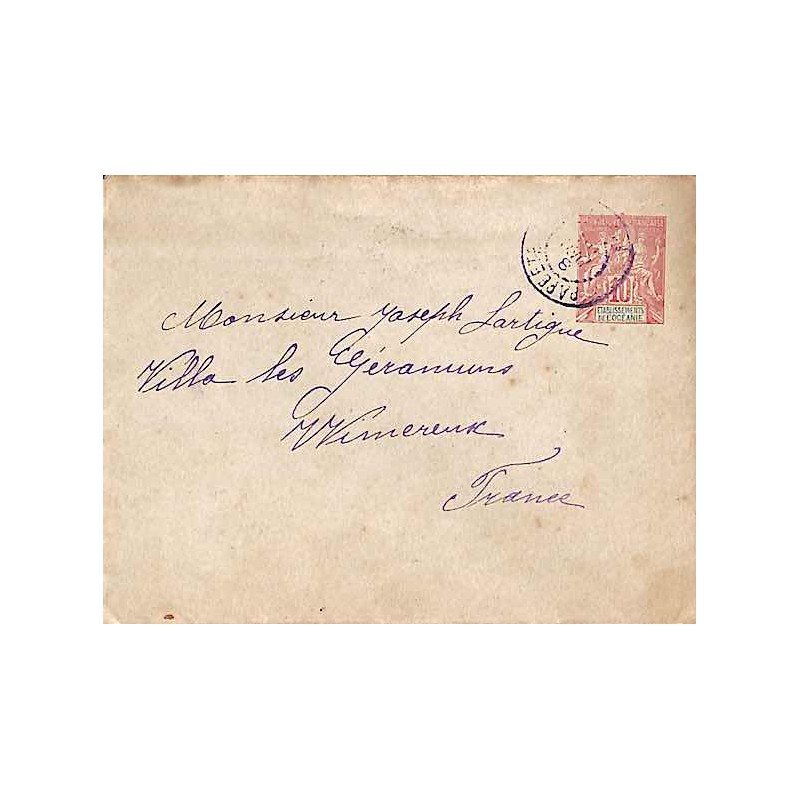 RÉPUBLIQUE FRANÇAISE
PAPEETE
10
ETABLISSEMENTS
DE L'OCÉANIE
Monsieur Joseph Lartigue
Villa les Géraniums
Wimereux
France